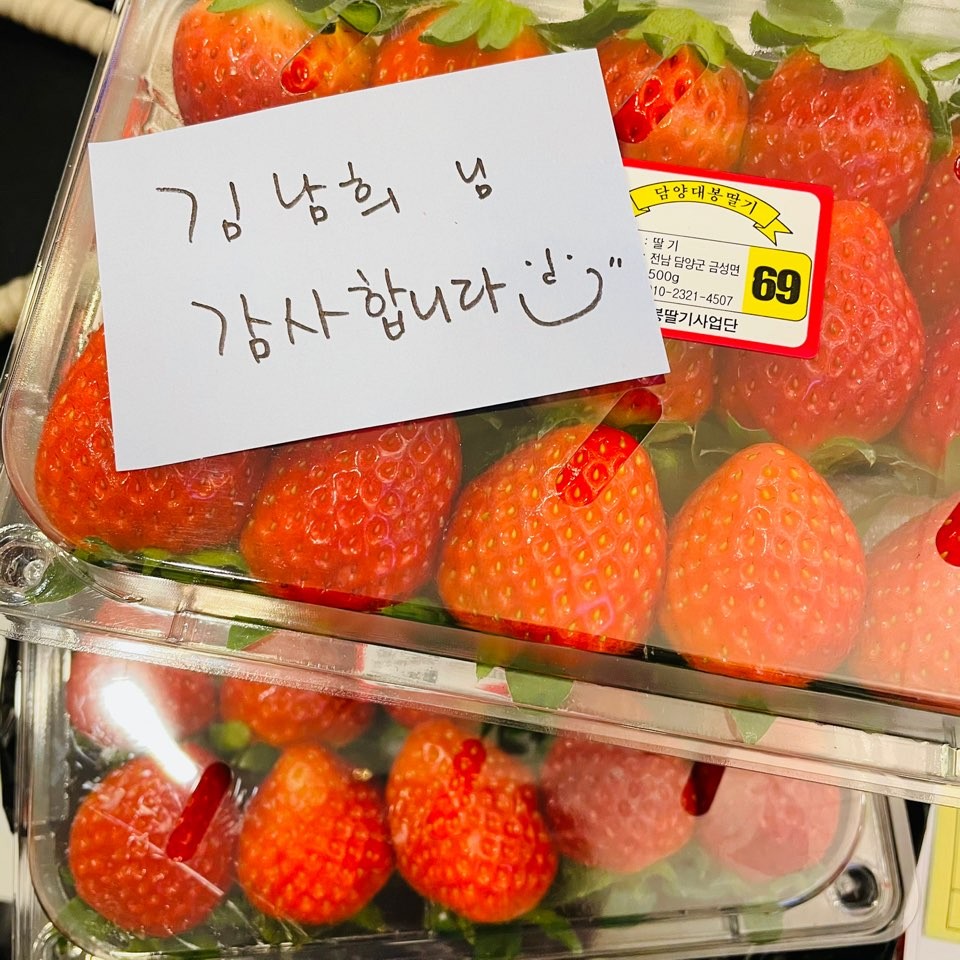 김남희 님
감사합니다
담양대봉딸기
: 딸 기
전남 담양군 금성면
500g
010-2321-4507
69
봉딸기사업단